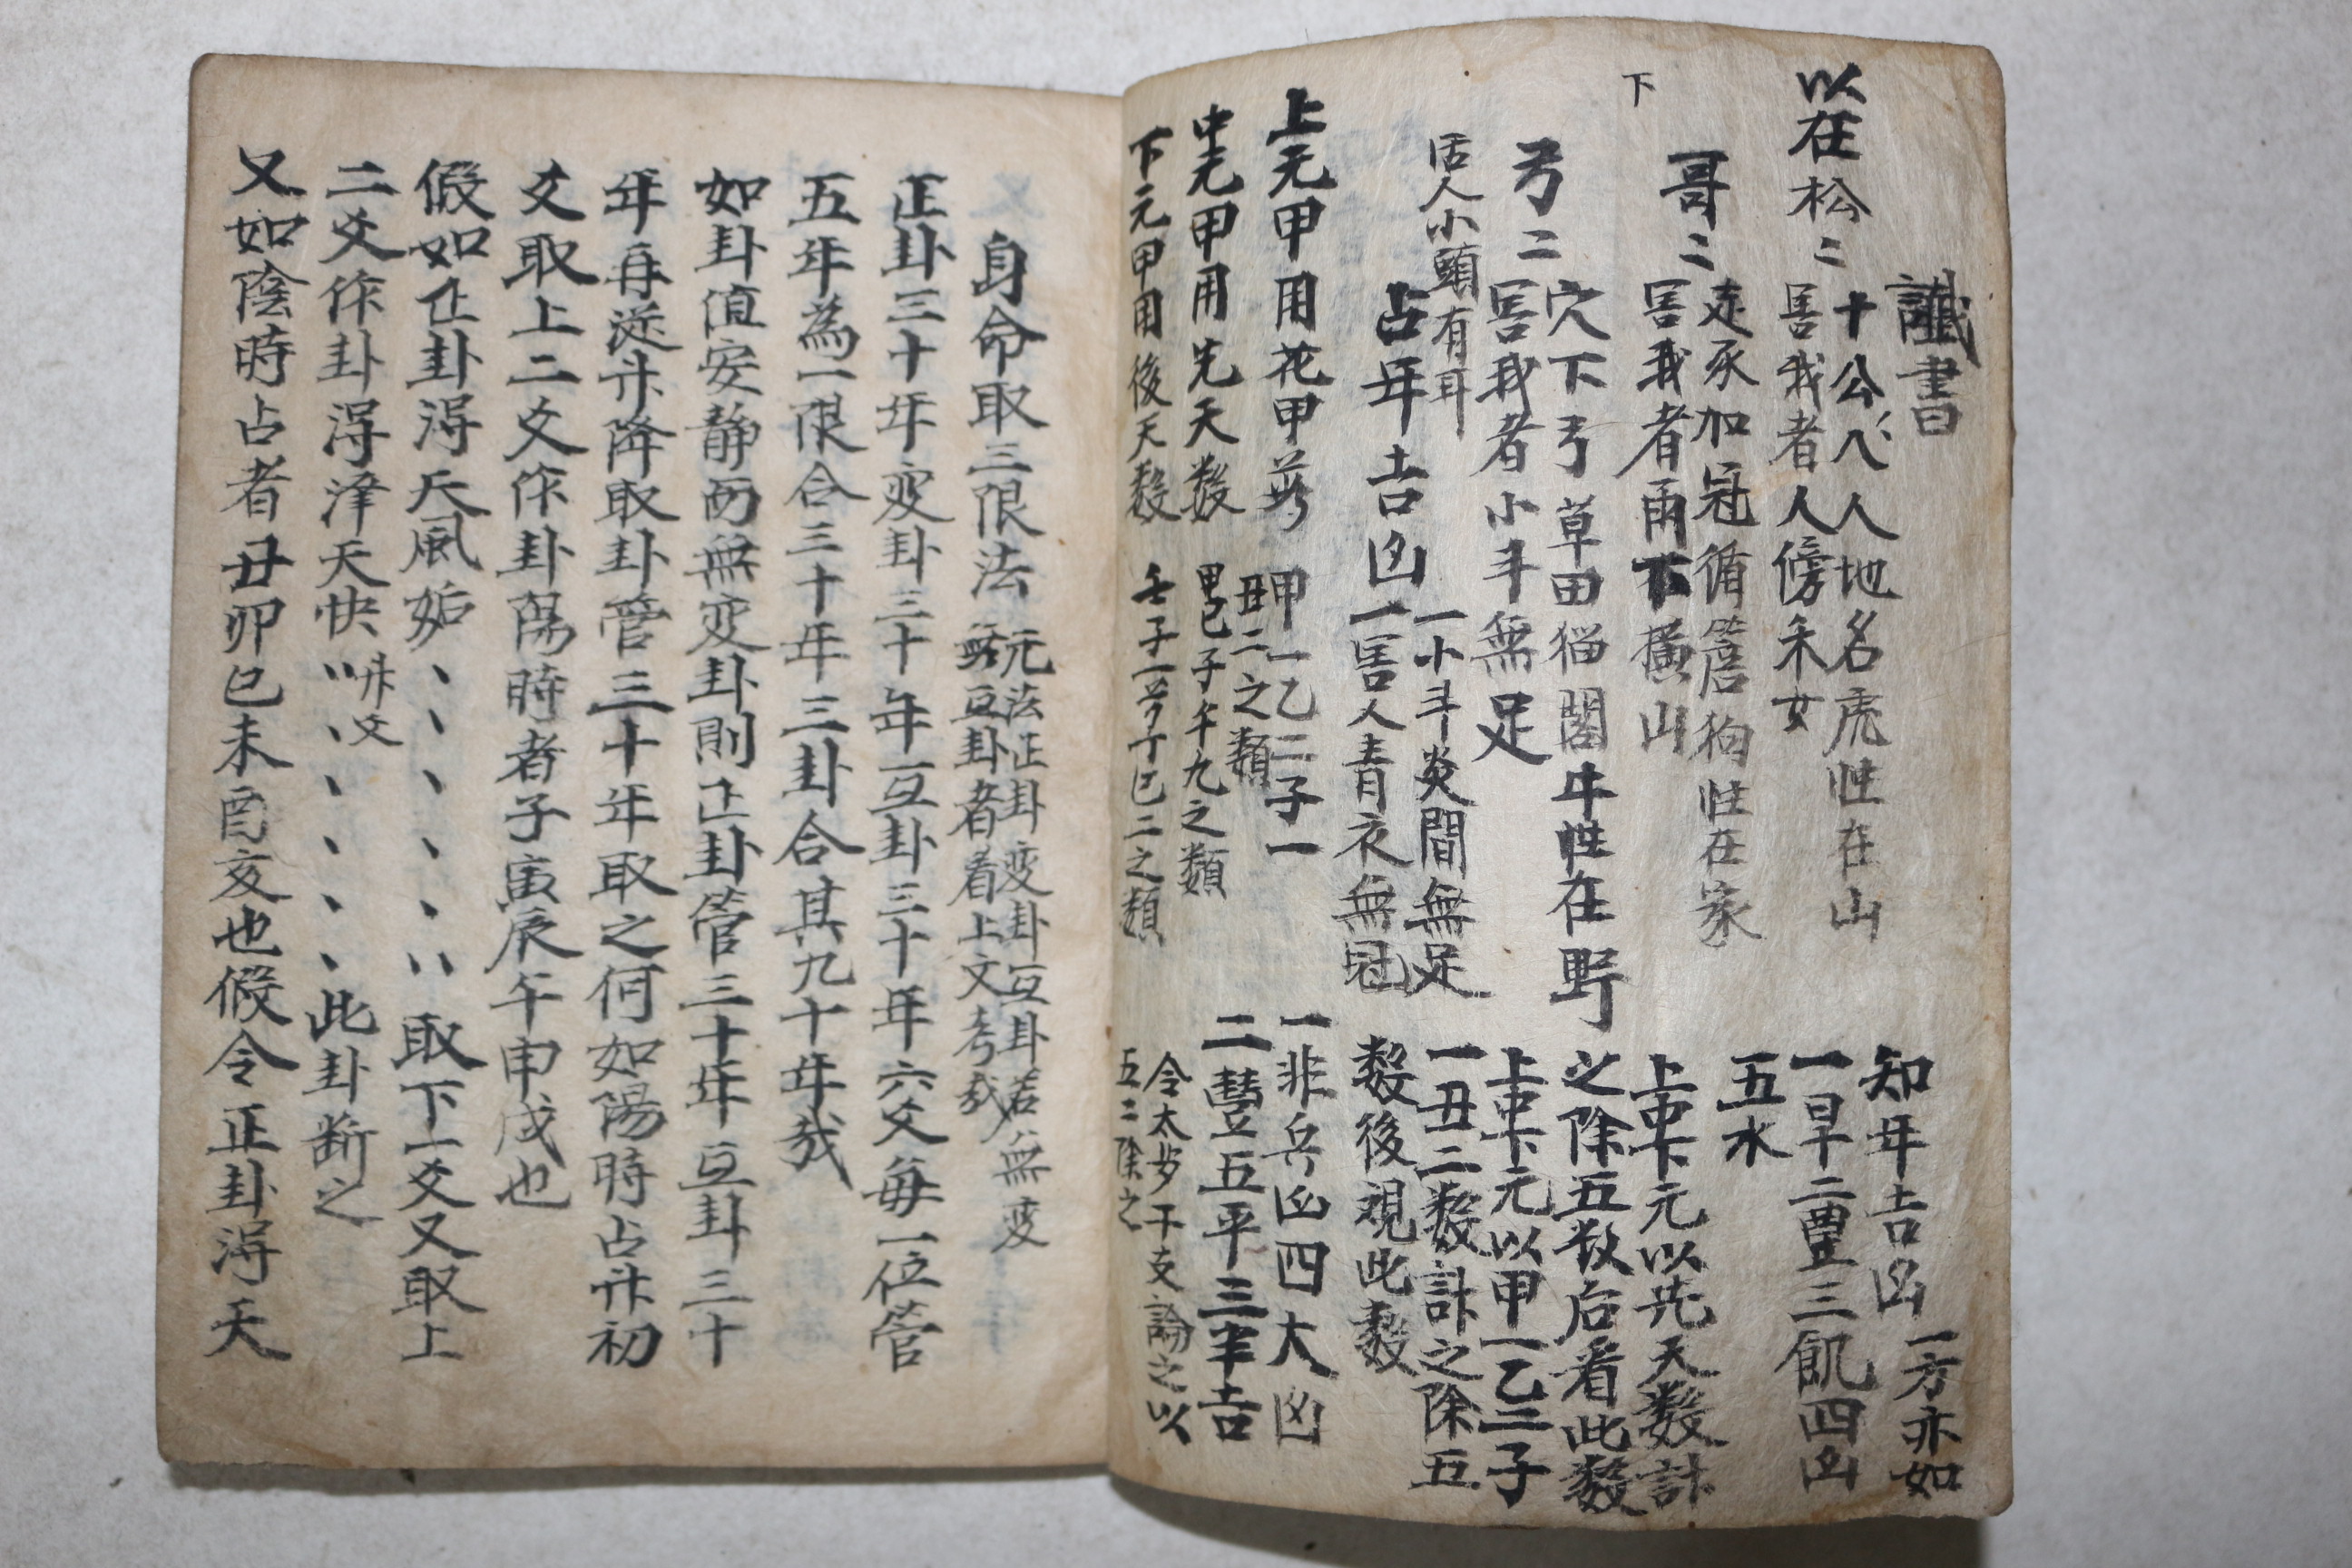 讖書
以在松二 十公八人地名虎性在山
害我者人傍禾女
哥二 走豕加冠循簷狗性在家
害我者雨下橫山
下
弓二 穴下弓草田猫閣牛性在野
害我者小斗無足
活人小頭有耳
占年吉凶 一小斗炎間無足
一害人青衣無冠
上元甲用花甲數 甲一乙二子一
丑二之類
中元甲用先天數 甲己子午九之類
下元甲用後天數 壬子一 丁巳二之類
知年吉凶 一方亦如
一旱二豊三飢四凶
五水
上中下元以先天數計
之除五數后看此數
上中下元以甲一乙二子
一丑二數計之除五
數後視此數
一非兵凶四大凶
二豊五平三半吉
令太歲干支論之以
五二除之
身命取三限法 元法正卦変卦互卦若無変
無互卦者看上文考哉
正卦三十年変卦三十年互卦三十年六爻每一位管
五年為一限合三十年三卦合其九十年哉
如卦值安静而無変卦則正卦管三十年互卦三十
年再逆升降取卦管三十年取之何如陽時占升初
爻取上二爻作卦陽時者子寅辰午申戌也
假如正卦得天風姤、、、、、、取下一爻又取上
二爻作卦得澤天快升爻、、、、、、此卦断之
又如陰時占者丑卯巳未酉亥也假令正卦得天